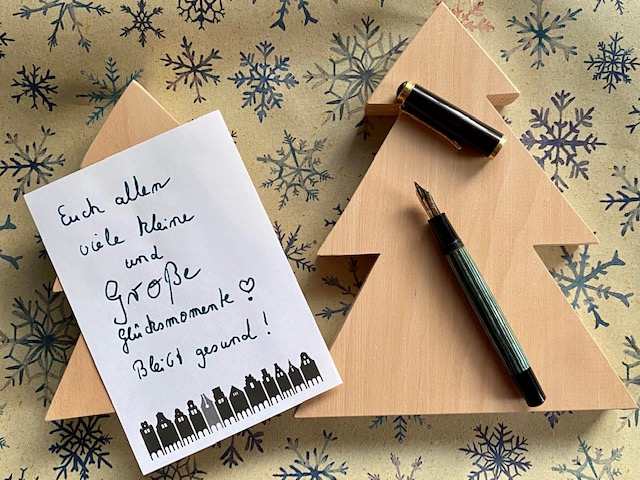 Euch allen
viele kleine
und
Große
Glücksmomente
Bleibt gesund!